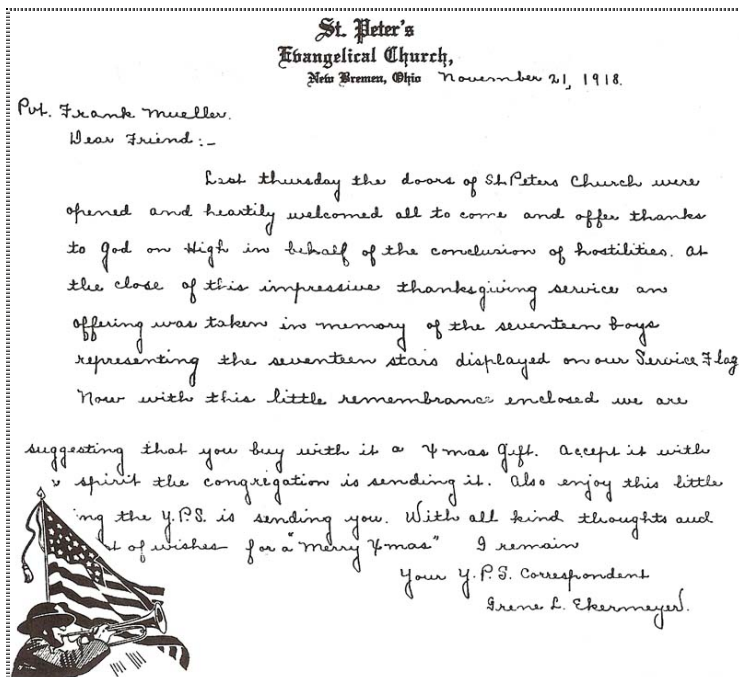 St. Peter's
Evangelical Church,
New Bremen, Ohio November 21, 1918.
Pvt. Frank Mueller.
Dear Friend:-
Last thursday the doors of St. Peters Church were
opened and heartily welcomed all to come and offer thanks
to God on High in behalf of the conclusion of hostilities. At
the close of this impressive thanksgiving service an
offering was taken in memory of the seventeen boys
representing the seventeen stars displayed on our Service Flag
Now with this little remembrance enclosed we are
suggesting that you buy with it a Xmas Gift. Accept it with
spirit the congregation is sending it. Also enjoy this little
ing the Y.P.S. is sending you. With all kind thoughts and
t of wishes for a "Merry Xmas" I remain
Your Y.P.S. Correspondent
Irene L. Ekermeyer.